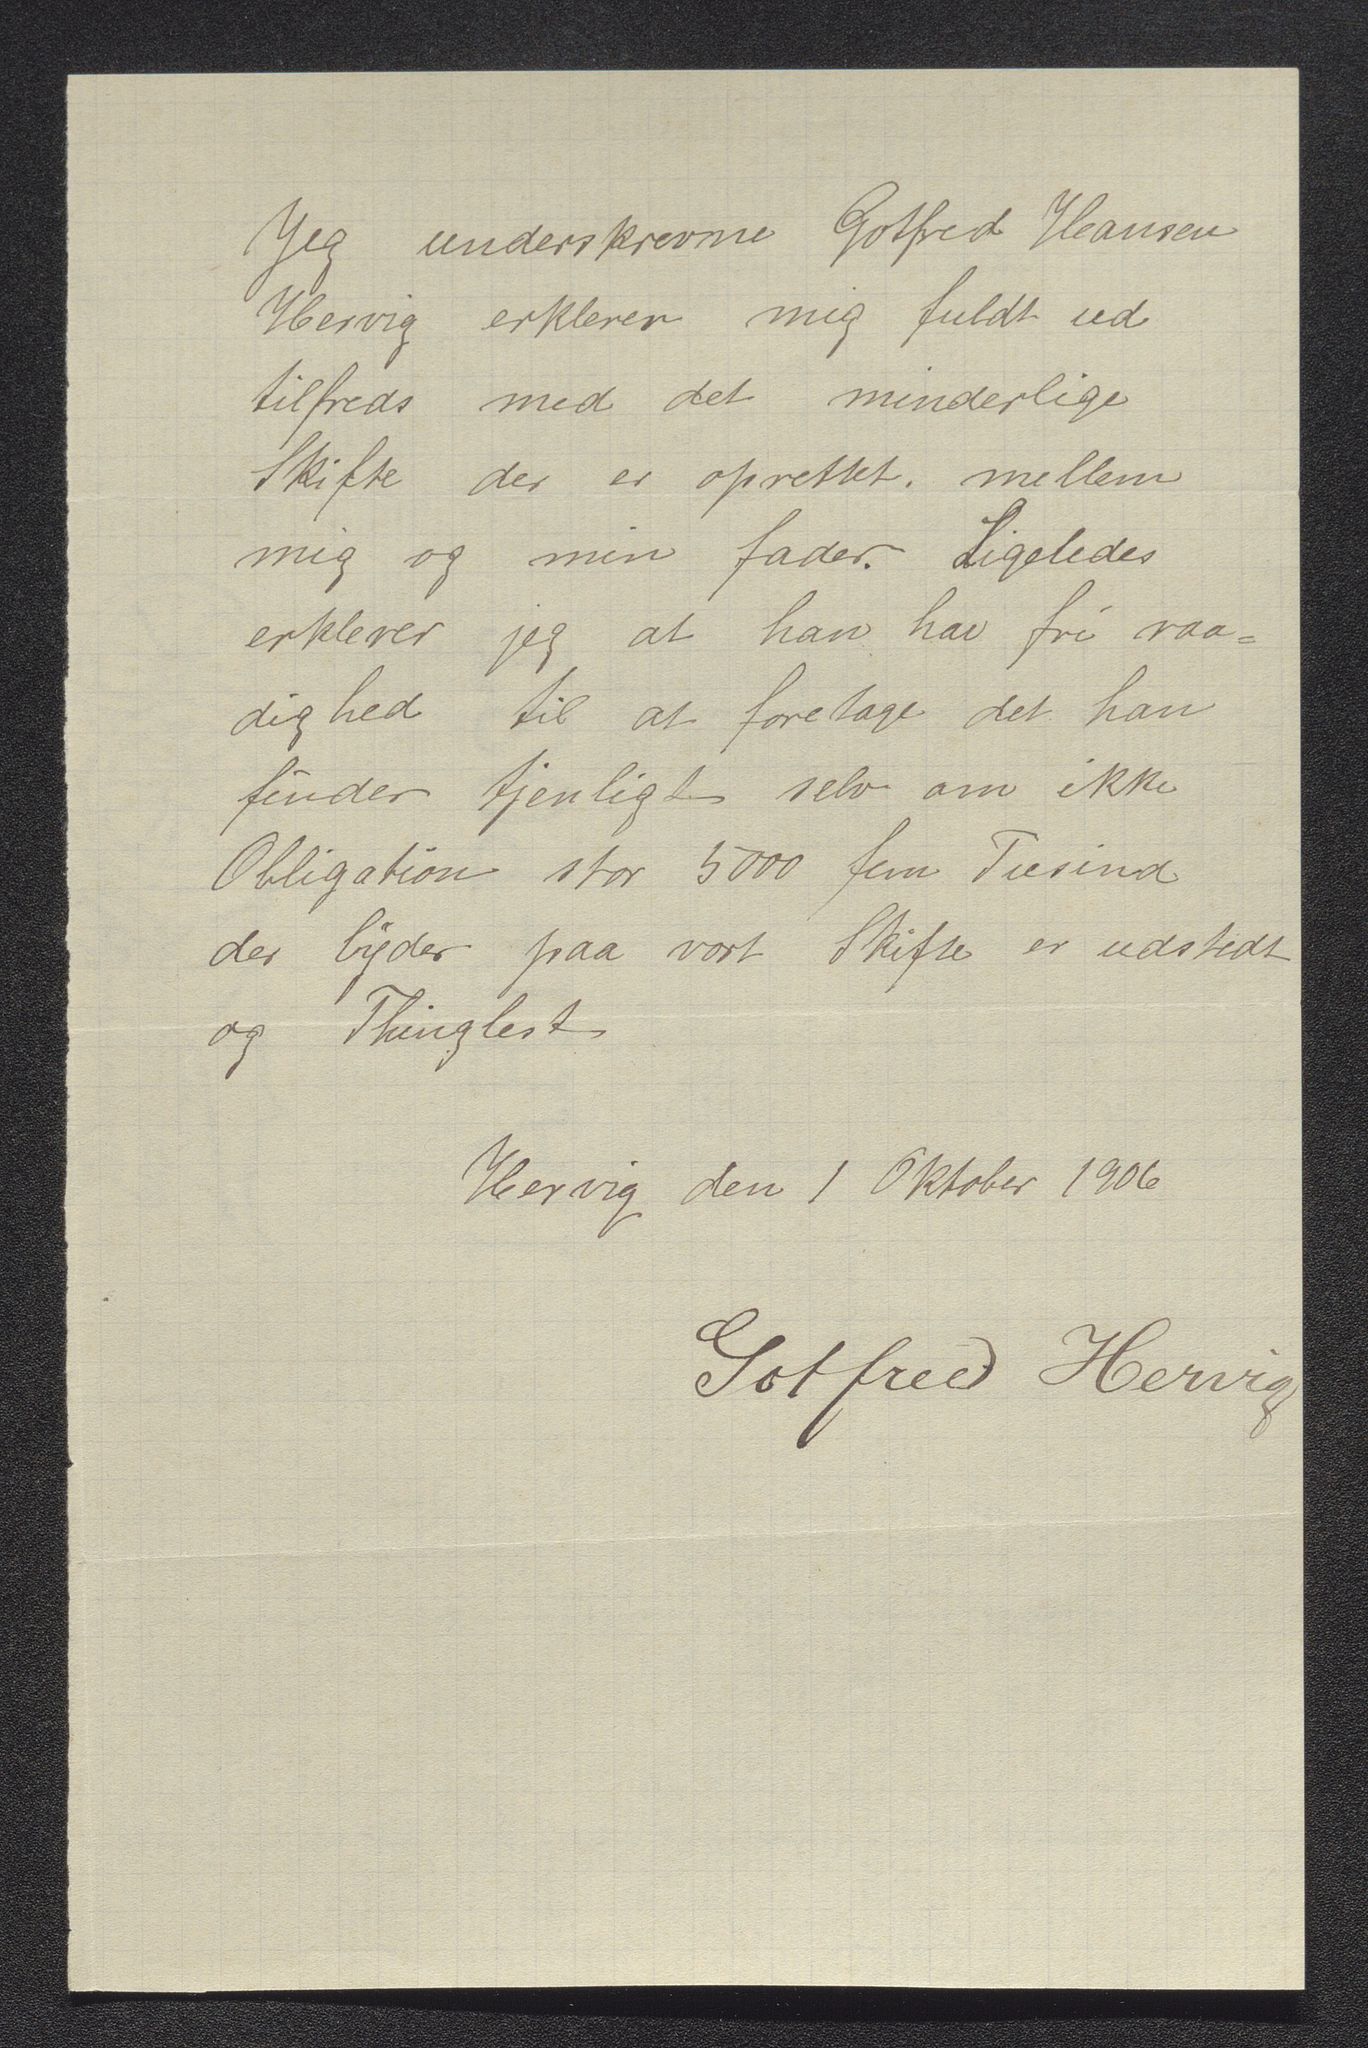 Jeg underskrevne Gotfred Hansen
Hervig erklerer mig fuldt ud
tilfreds med det minderlige
Skifte der er oprettet. mellem
mig og min fader. Ligeledes
erklerer jeg at han har fri raa=
dighed til at foretage det han
finder tjenligt selv om ikke
Obligation stor 5000 fem Tusind
der lyder paa vort Skifte er udstedt
og Thinglest
Hervig den 1 Oktober 1906
Gotfred Hervig